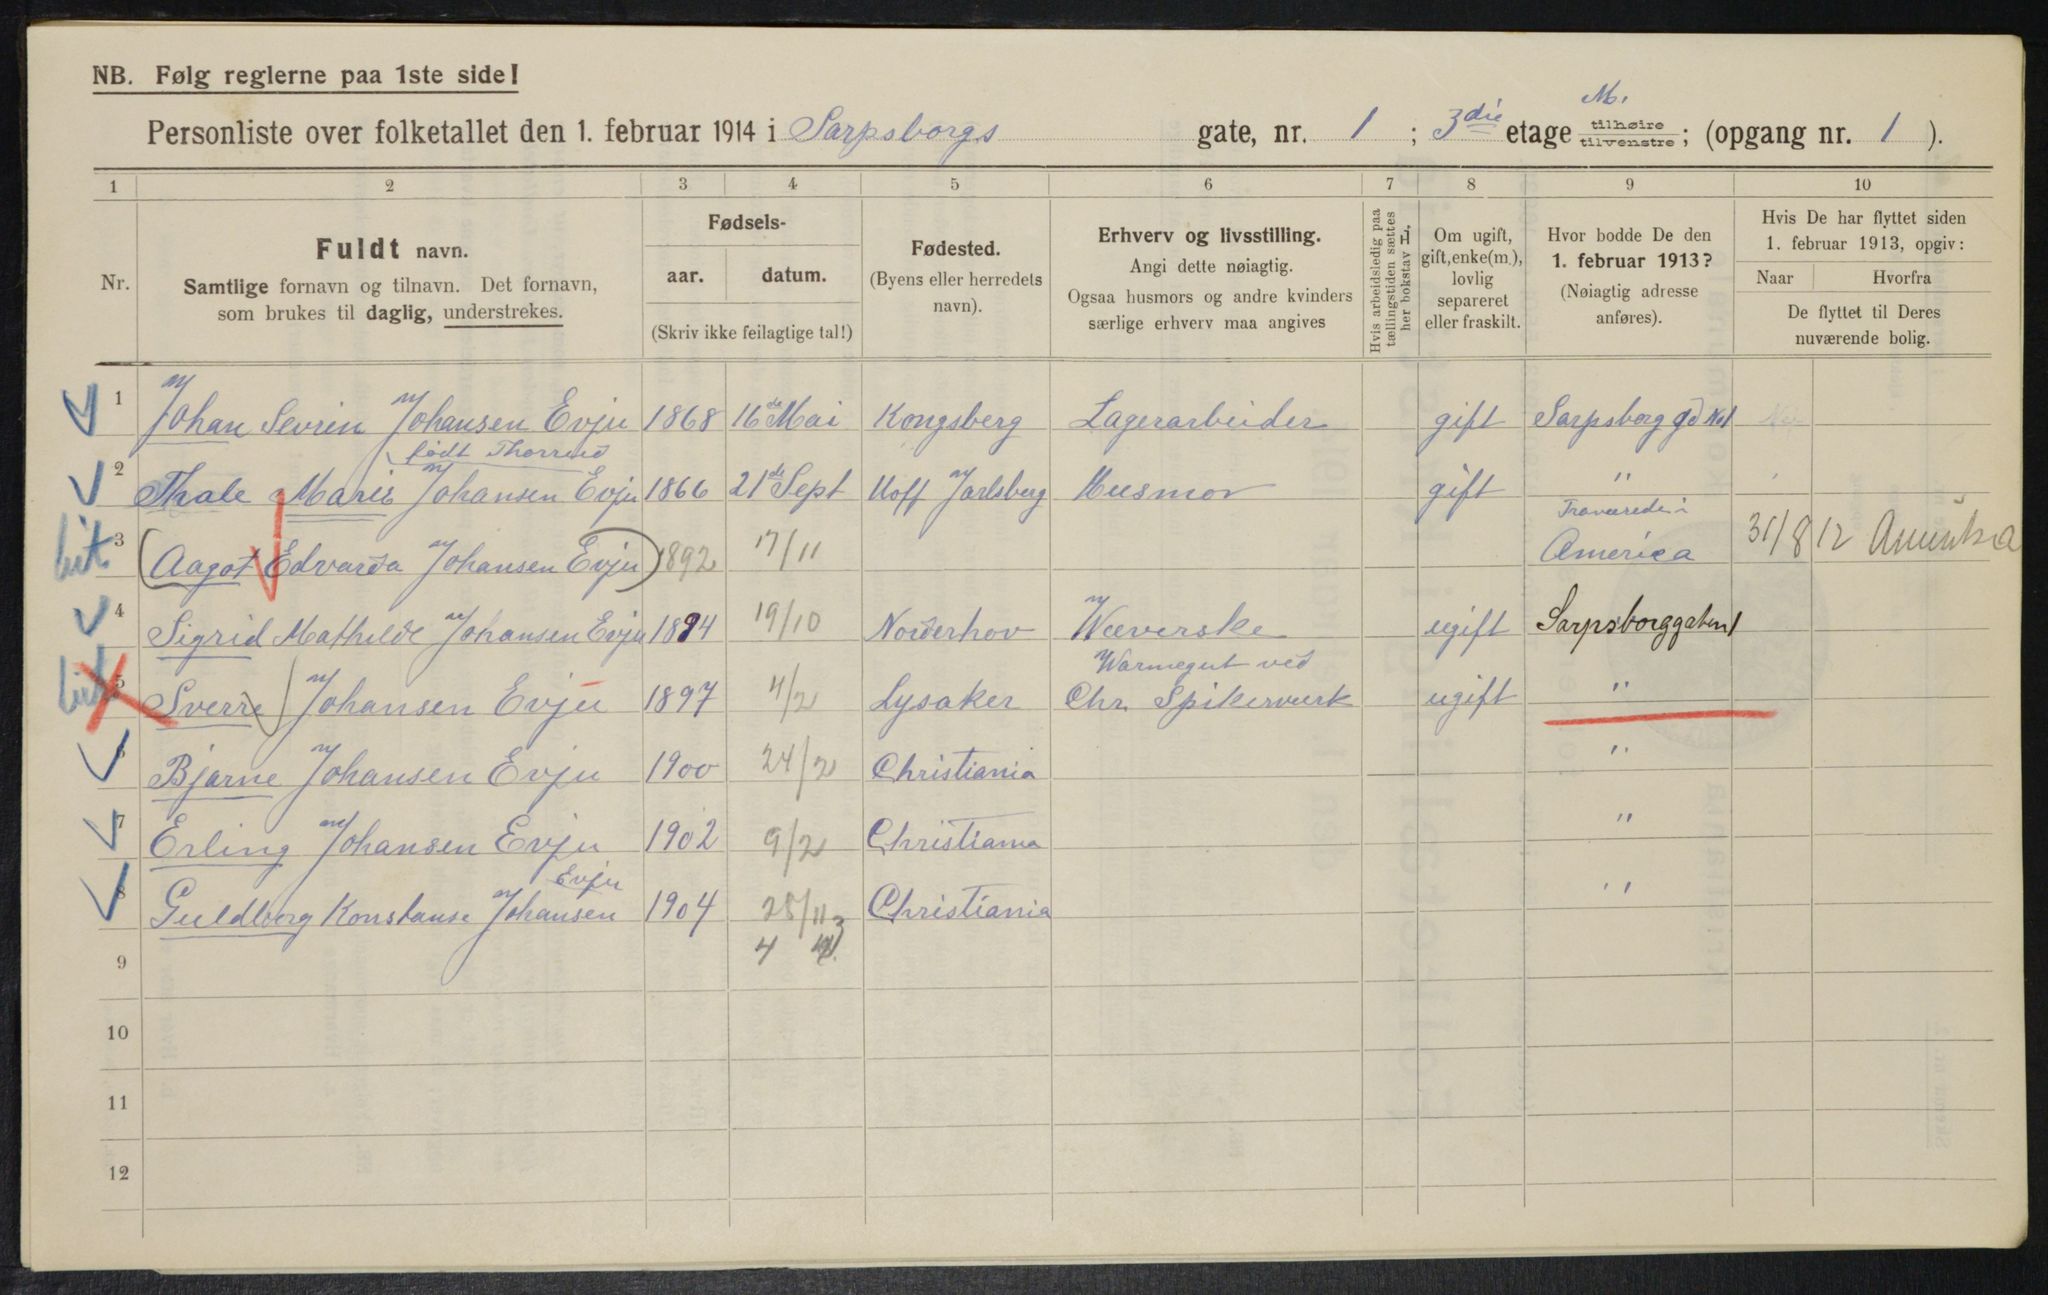 NB. Følg reglerne paa 1ste side!
M.
Personliste over folketallet den 1. februar 1914 i Sarpsborgs gate, nr. 1 ; 3die etage tilhøire tilvenstre ; (opgang nr. 1 ).
1 2 3 4 5 6 7 8 9 10
Nr.
Fuldt navn.
Samtlige fornavn og tilnavn. Det fornavn,
som brukes til daglig, understrekes.
Fødsels-
aar. datum.
(Skriv ikke feilagtige tal!)
Fødested.
(Byens eller herredets
navn).
Erhverv og livsstilling.
Angi dette nøiagtig.
Ogsaa husmors og andre kvinders
særlige erhverv maa angives
Hvis arbeidsledig paa
tællingstiden sættes
her bokstav L,
Om ugift,
gift, enke(m.),
lovlig
separeret
eller fraskilt.
Hvor bodde De den
1. februar 1913?
(Nøiagtig adresse
anføres).
Hvis De har flyttet siden
1. februar 1913, opgiv:
Naar Hvorfra
De flyttet til Deres
nuværende bolig.
1 Johan Sevrin Johansen Evju 1868 16de Mai Kongsberg Lagerarbeider gift Sarpsborg gd No1
født Thorrud
2 Thale Marie Johansen Evju 1866 21de Sept Hoff Jarlsberg Husmor gift "
Fraværede i
3 Aagot Edvarda Johansen Evju 1892 17/11 America 31/8 12 Amerika
4 Sigrid Mathilde Johansen Evju 1894 19/10 Norderhov Væverske ugift Sarpsborggaten 1
Warmegut ved
5 Sverre Johansen Evju 1897 4/2 Lysaker Chr. Spikerverk ugift "
6 Bjarne Johansen Evju 1900 24/2 Christiania "
7 Erling Johansen Evju 1902 9/2 Christiania "
Evju
8 Guldborg Konstanse Johansen 1904 25/11 Christiania "
9 4
10
11
12